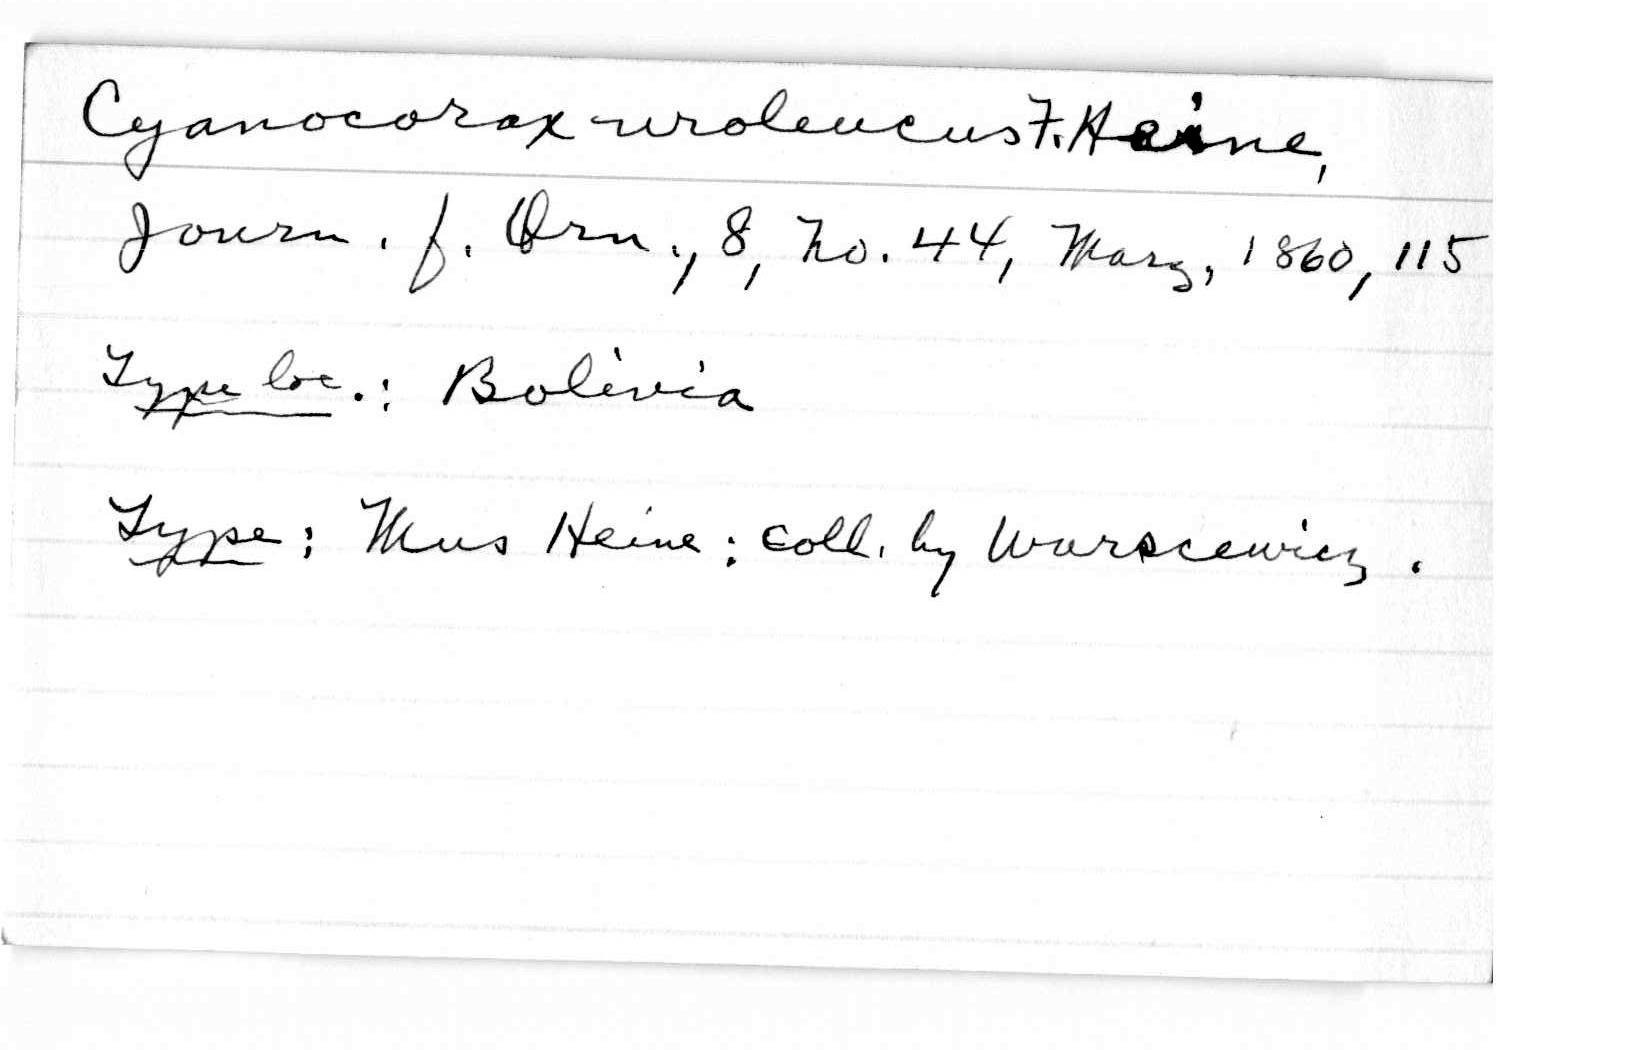 Cyanocorax uroleucus F. Heine,
Journ. f. Orn., 8, No. 44, Marz, 1860, 115
Type loc.: Bolivia
Type: Mus Heine; coll. by Warscewicz.